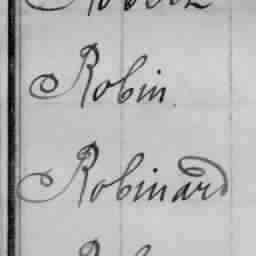 Robin
Robinard